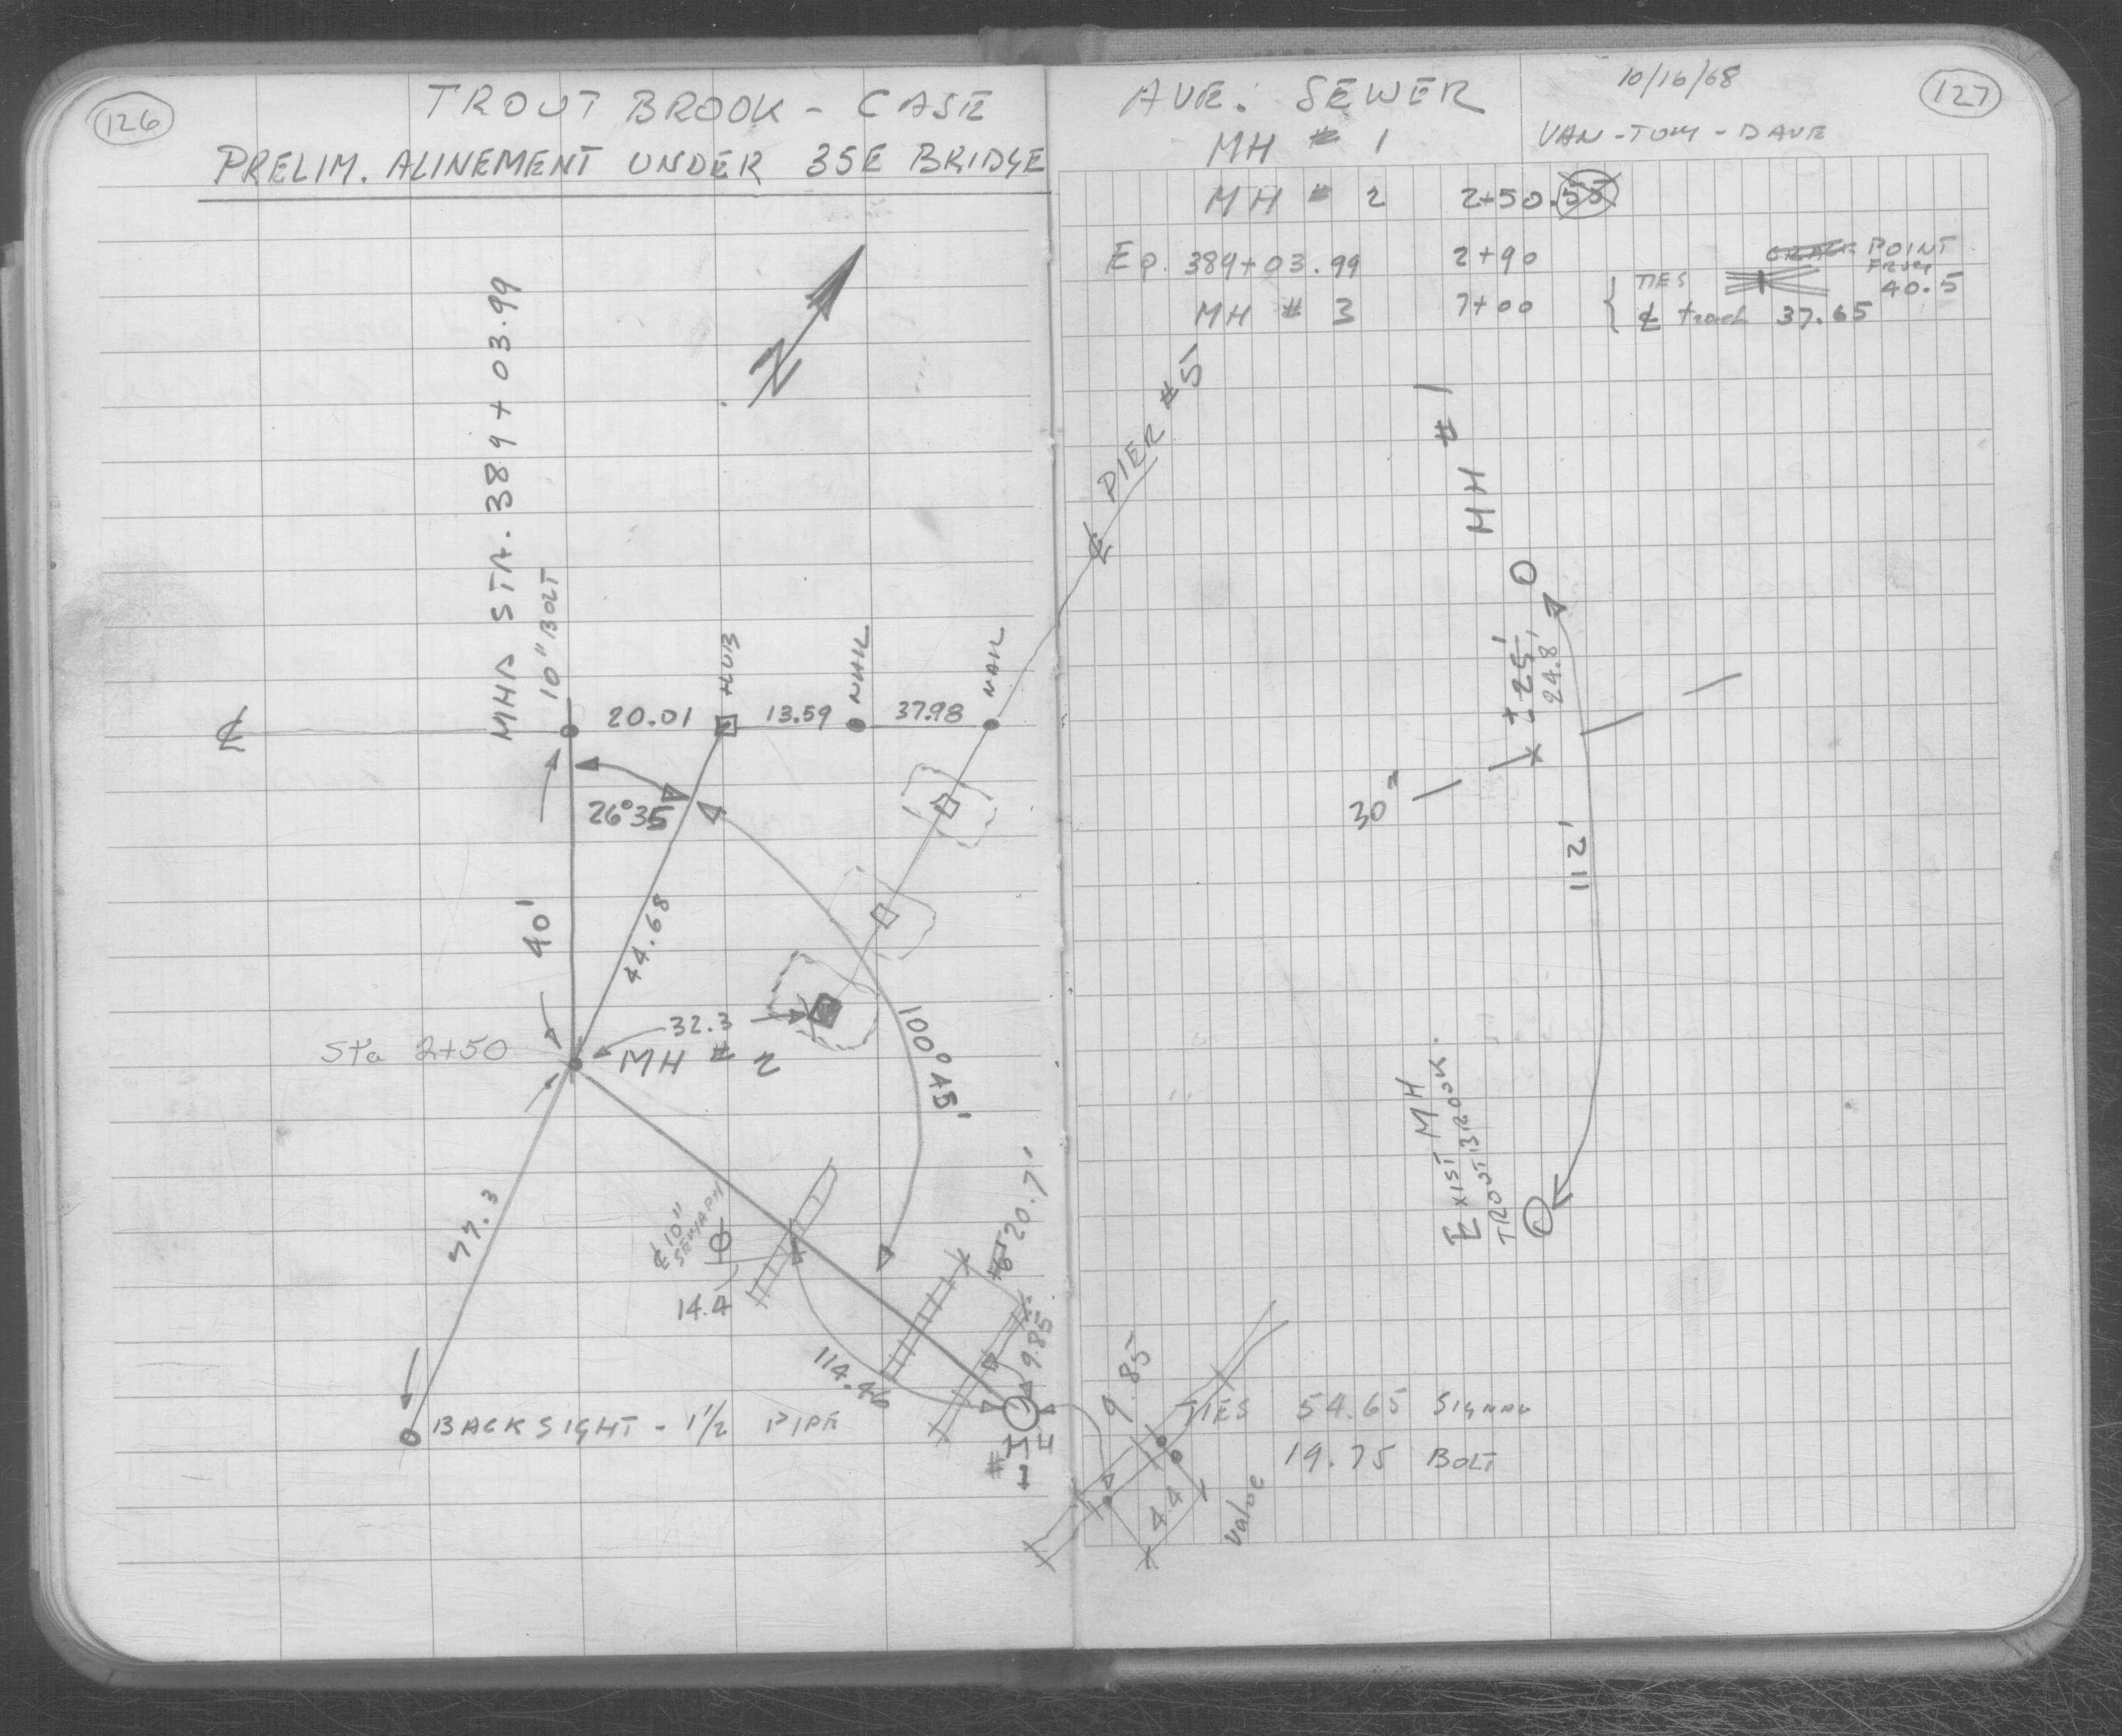 126
TROUT BROOK - CASE
PRELIM. ALINEMENT UNDER 35E BRIDGE
N
MHD STA. 389+03.99
10" BOLT
℄
20.01
HUB
13.59
NAIL
37.98
NAIL
26°35
40'
44.68
32.3
Sta 2+50
MH # 2
100°45'
77.3
℄ 10"
SEMAPH
14.4
114.46
20.7'
9.85
BACKSIGHT - 1½ PIPE
MH
#1
AVE. SEWER
10/16/68
127
MH # 1
VAN - TOM - DAVE
MH # 2 2+50.55
Eq. 389+03.99 2+90
POINT
FROM
TIES
40.5
MH # 3 7+00
℄ track 37.65
℄ PIER #5
MH #1
±25'
24.8'
30"
112'
EXIST MH
TROUTBROOK.
9.85
TIES 54.65 SIGNAL
19.75 BOLT
4.4
Valve